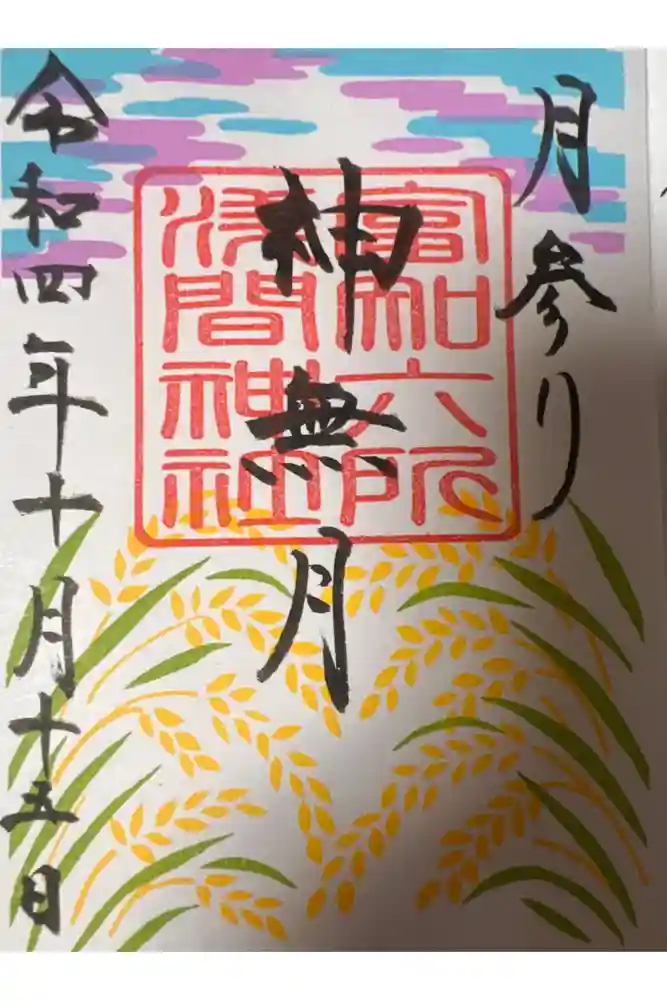 月参り
神無月
富知六所
浅間神社
令和四年十月十五日